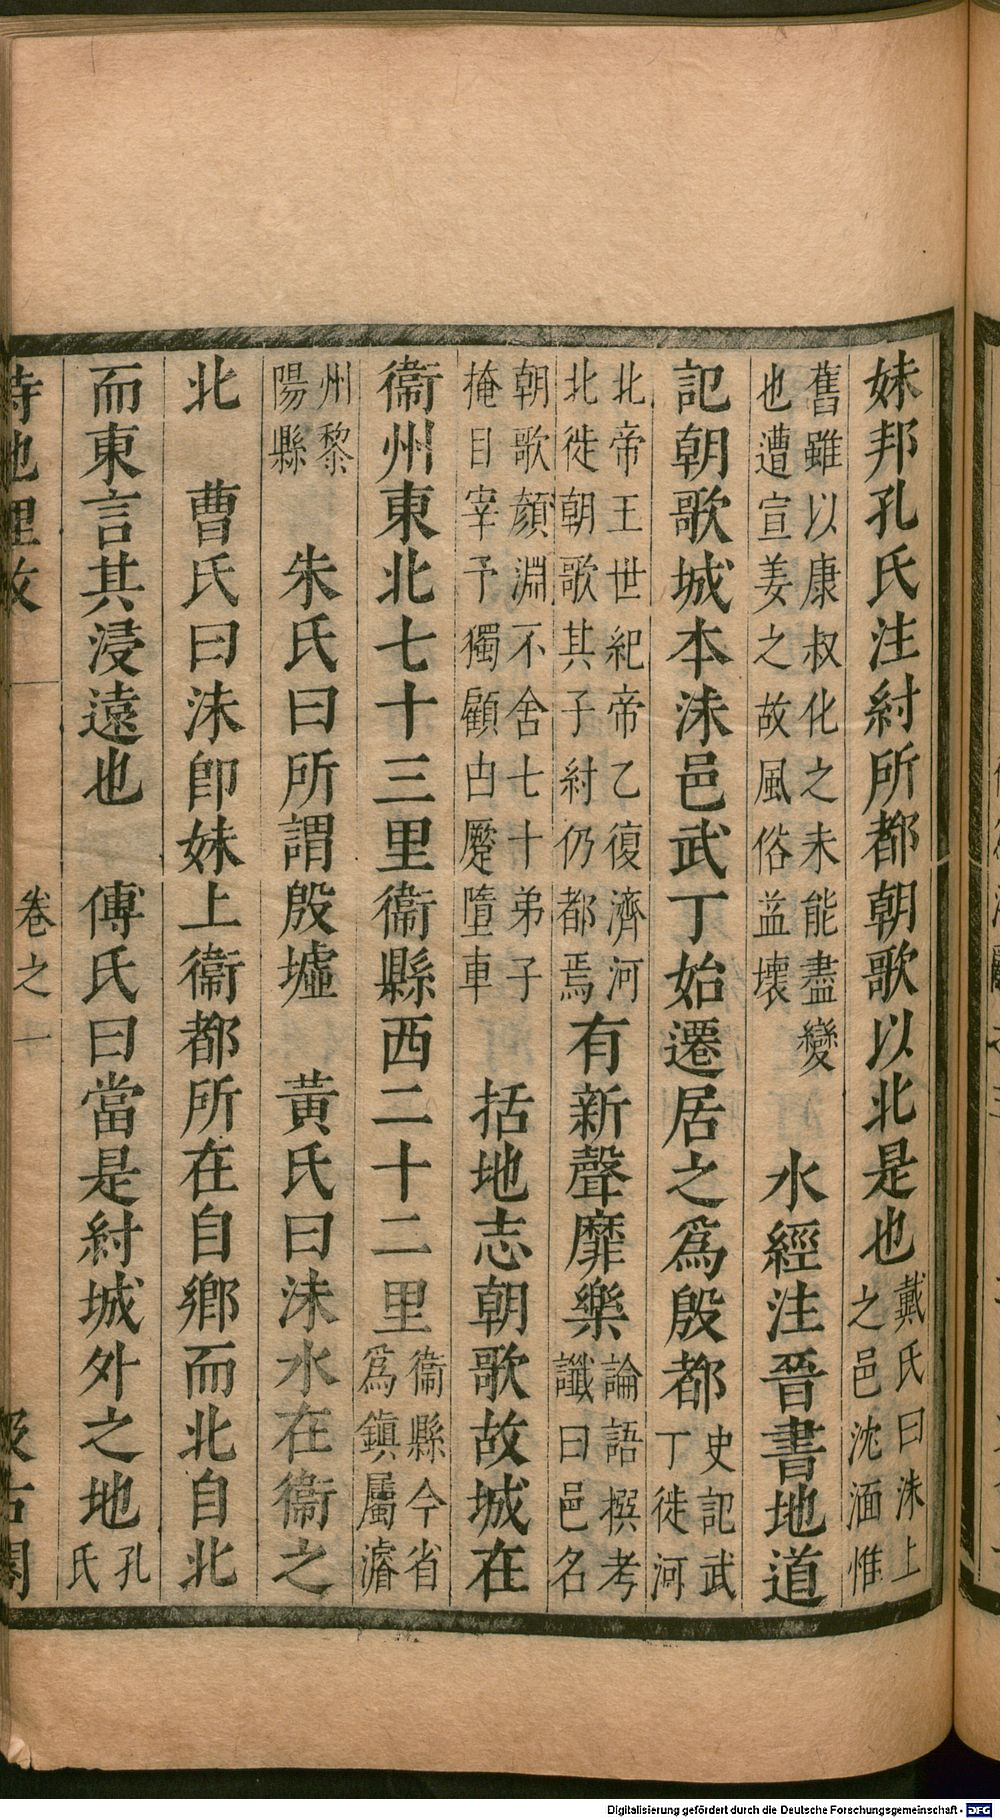 妹邦孔氏注紂所都朝歌以北是也戴氏曰沬上之邑沈湎惟
舊雖以康叔化之未能盡變也遭宣姜之故風俗益壞　水經注晉書地道
記朝歌城本沬邑武丁始遷居之爲殷都史記武丁徙河
北帝王世紀帝乙復濟河北徙朝歌其子紂仍都焉有新聲靡樂論語撰考讖曰邑名
朝歌顔淵不舍七十弟子掩目宰予獨顧甴蹷墮車　括地志朝歌故城在
衞州東北七十三里衞縣西二十二里衞縣今省爲鎮屬濬
州黎陽縣　朱氏曰所謂殷墟　黄氏曰沬水在衞之
北　曹氏曰沬卽妹上衞都所在自鄉而北自北
而東言其浸遠也　傅氏曰當是紂城外之地孔氏
詩地里攷　卷之一　汲古閣
Digitalisierung gefördert durch die Deutsche Forschungsgemeinschaft - DFG